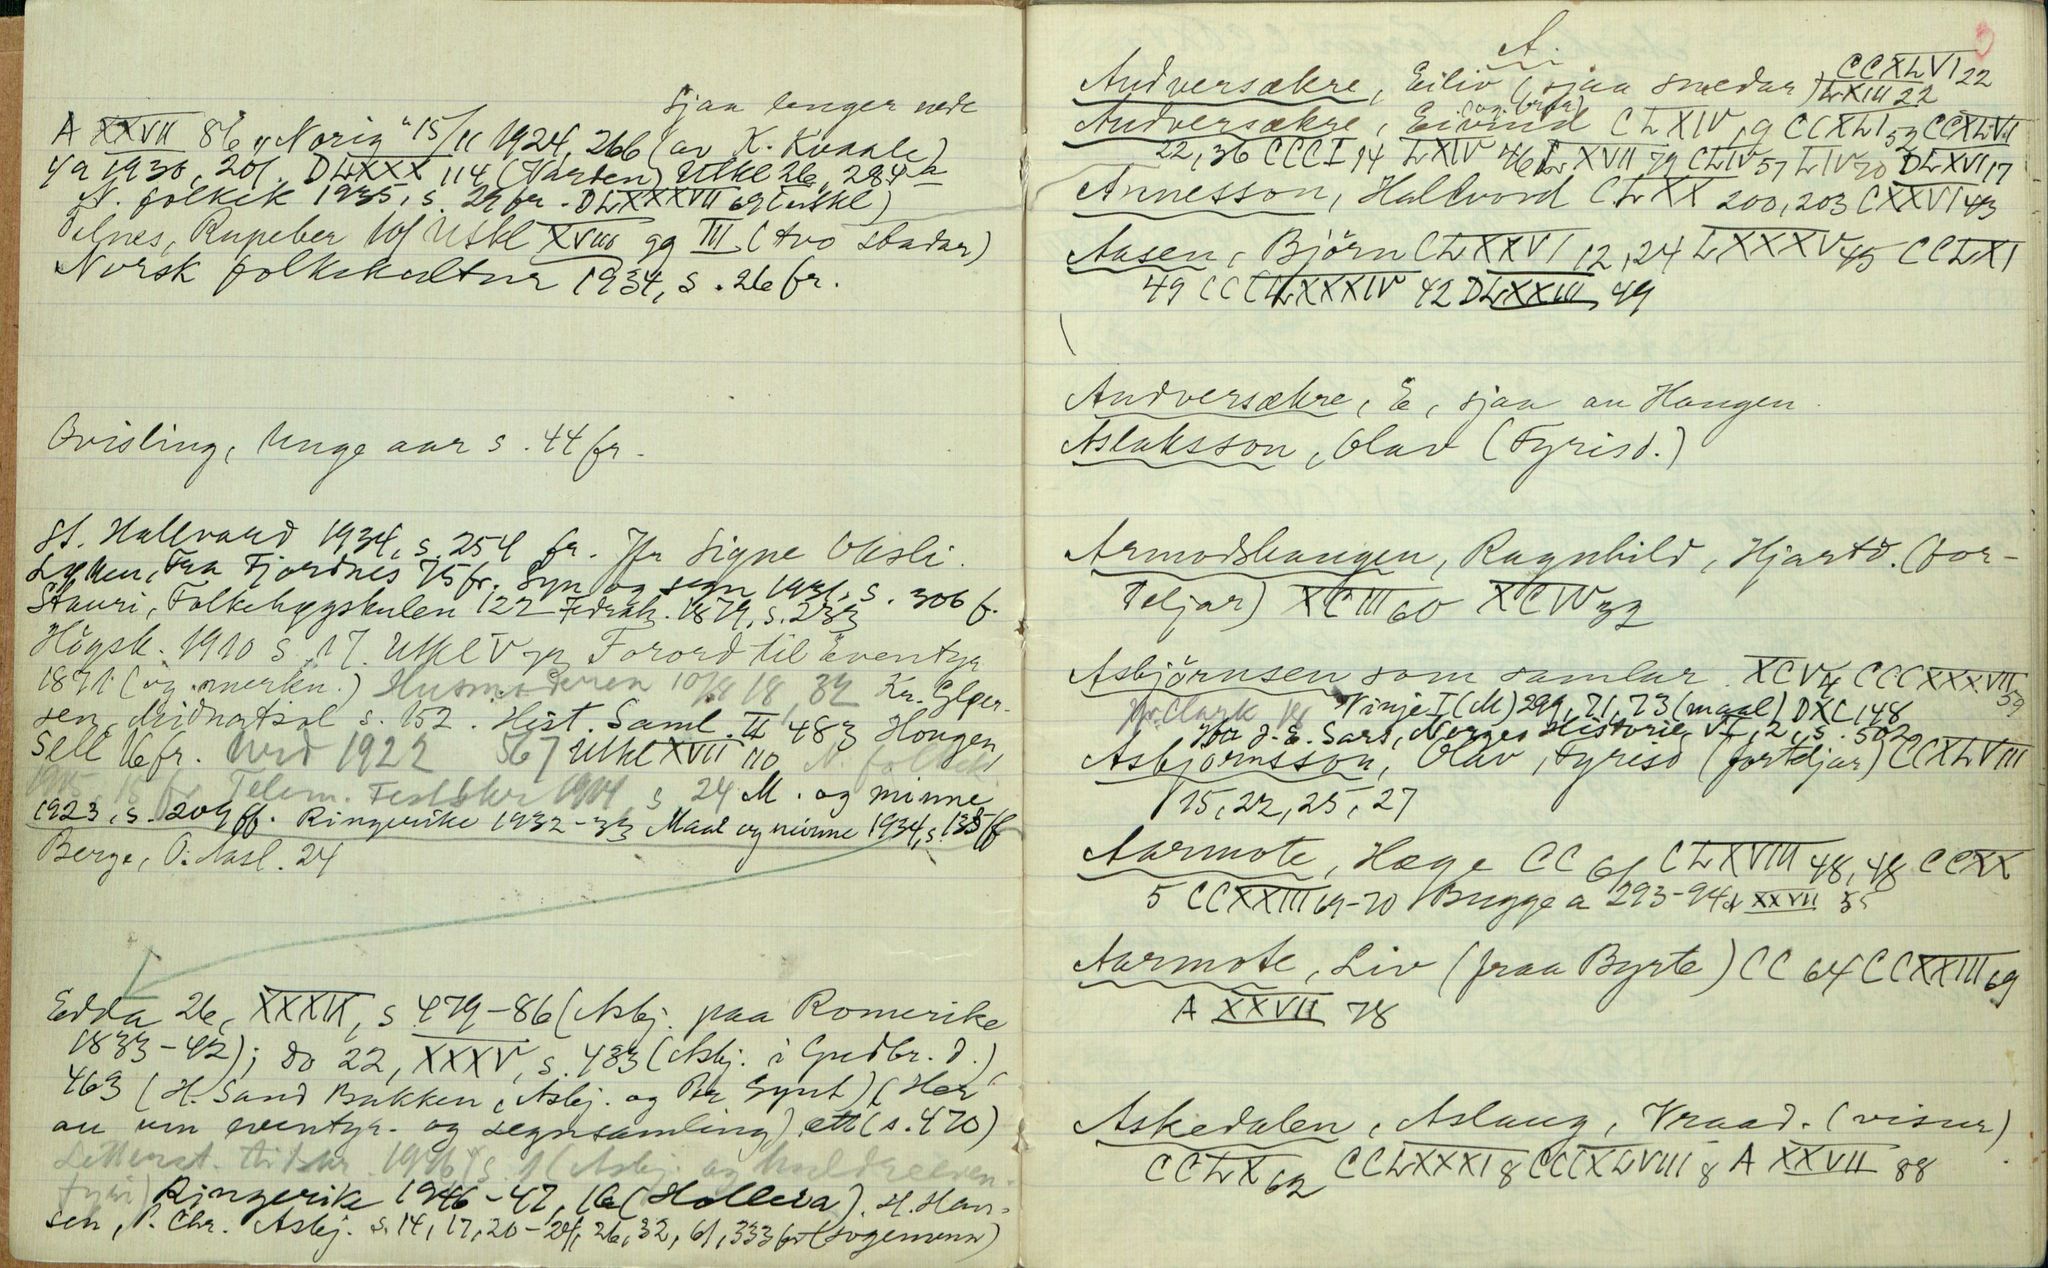 sjaa lenger nede
A XXVII 86 „Norig" 15/11 1924, 266 (av K. Kvaale)
49 1930, 201. DLXXX 114 (Varden) Utkl 26, 284 a
N. folkek 1935, s. 29 fr. DLXXXVII 69 (utkl)
Telnes, Rupeber 101 Utkl XVIII 99 III (tvo stadar)
Norsk folkekultur 1934, s. 26 fr.
Qvisling, Unge aar s. 44 fr.
St. Hallvard 1934, s. 254 fr. Jfr Signe Oksli.
Lykken, Fra Fjordnes 75 fr. Syn og segn 1931, s. 306 f.
Stauri, Folkehøgskulen 122 Fedrah. 1879, s. 233
Högsk. 1910 s. 17. Utkl V 72 Forord til Eventyr
1871 (og merkn.) Husmoderen 10/9 18, 32 Kr. Elger-
sen, Midnatsol s. 152. Hist. Saml. II 483 Hougen,
Sell 16 fr. Urd 1922 567 Utkl XVII 110 N. folkek
1915, 15 fr Telem. Festskr 1904 s 24 M. og minne
1923, s. 209 ff. Ringerike 1932-33 Maal og minne 1934, s. 135 ff
Berge, O. Aasl. 24
Edda 26, XXXIX, s. 479-86 (Asbj. paa Romerike
1833-42); do 22, XXXV, s. 433 (Asbj. i Gudbr. d.)
463 (H. Sand Bakken, Asbj. og Per Gynt) (Her
au um eventyr- og segnsamling) (s. 470)
Litterat. tidskr. 1946, s. 1 (Asbj. og huldreeven-
tyri) Ringerike 1946-47, 16 (Hollera). H. Han-
sen, P. Chr. Asbj. s. 14, 17, 20-24, 26, 32, 61, 333 fr (sogemenn)
A.
Andversækre, Eiliv (sjaa smedar) CCXLVI 22
LXIII 22
Andversækre, Eivind CLXIV, 9 CCXLI 52 CCXLVI
22, 36 CCCI 14 LXIV 46 LXVII 79 CLIV 57 LIV 20 DLXVI 17
Annesson, Hallvord CLXX 200, 203 CXXVI 43
Aasen, Björn CLXXVI 12, 24 LXXXV 45 CCLXI
49 CCCLXXXIV 42 DLXXIII 49
Andversækre, E, sjaa au Haugen
Aslaksson, Olav (Fyrisd.)
Armodshaugen, Ragnhild, Hjartd. (for-
teljar) XCIII 60 XCIV 32
Asbjörnsen som samlar XCV 4 CCCXXXVII
59
Mr. Clark 18 Vinje I (M) 299, 71, 73 (maal) DXC 148
J. E. Sars, Norges Historie VI, 2, s. 502
Asbjørnsson, Olav, Fyrisd (forteljar) CCXLVIII
15, 22, 25, 27
Aarmote, Hæge CC 61 CLXVIII 48, 48 CCXX
5 CCXXIII 69-70 Bugge a 293-94 A XXVII 35
Aarmote, Liv (fraa Byrte) CC 64 CCXXIII 69
A XXVII 78
Askedalen, Aslaug, Vraad. (visur)
CCLX 62 CCLXXXI 8 CCCXLVIII 8 A XXVII 88